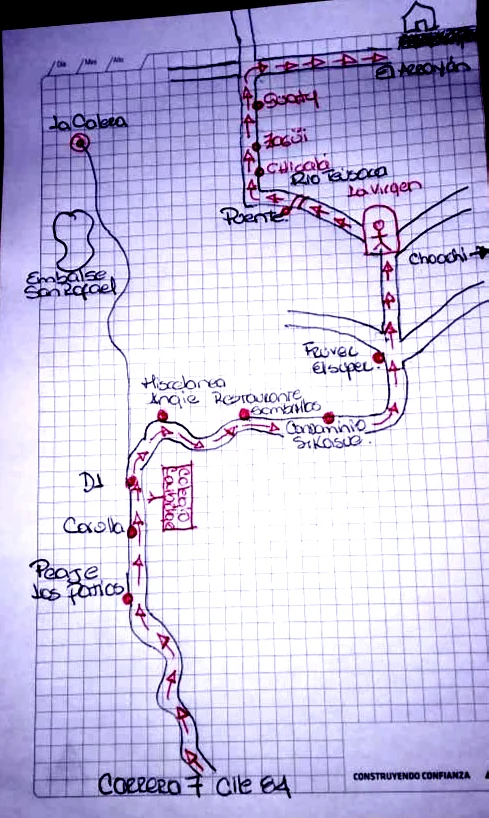 Día Mes Año
El Arrayán
Suaty
La Calera
Zagüi
Chicalá
Rio Teusaca
La Virgen
Puente
Choachi
Embalse
San Rafael
Fruver
El super
Miscelanea
Angie
Restaurante
Sombrillas
Condominio
D1
Colegio
Corolla
Peaje
los patios
Carrera 7 Clle 84
CONSTRUYENDO CONFIANZA